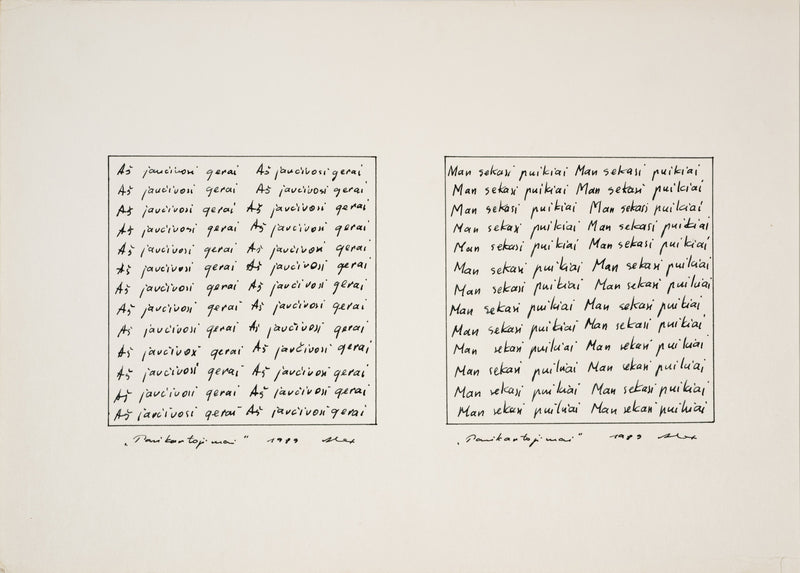 Aš jaučiuosi gerai Aš jaučiuosi gerai
Aš jaučiuosi gerai Aš jaučiuosi gerai
Aš jaučiuosi gerai Aš jaučiuosi gerai
Aš jaučiuosi gerai Aš jaučiuosi gerai
Aš jaučiuosi gerai Aš jaučiuosi gerai
Aš jaučiuosi gerai Aš jaučiuosi gerai
Aš jaučiuosi gerai Aš jaučiuosi gerai
Aš jaučiuosi gerai Aš jaučiuosi gerai
Aš jaučiuosi gerai Aš jaučiuosi gerai
Aš jaučiuosi gerai Aš jaučiuosi gerai
Aš jaučiuosi gerai Aš jaučiuosi gerai
Aš jaučiuosi gerai Aš jaučiuosi gerai
Aš jaučiuosi gerai Aš jaučiuosi gerai
„Pasikartojimai" 1989 Alex
Man sekasi puikiai Man sekasi puikiai
Man sekasi puikiai Man sekasi puikiai
Man sekasi puikiai Man sekasi puikiai
Man sekasi puikiai Man sekasi puikiai
Man sekasi puikiai Man sekasi puikiai
Man sekasi puikiai Man sekasi puikiai
Man sekasi puikiai Man sekasi puikiai
Man sekasi puikiai Man sekasi puikiai
Man sekasi puikiai Man sekasi puikiai
Man sekasi puikiai Man sekasi puikiai
Man sekasi puikiai Man sekasi puikiai
Man sekasi puikiai Man sekasi puikiai
Man sekasi puikiai Man sekasi puikiai
„Pasikartojimai" 1989 Alex